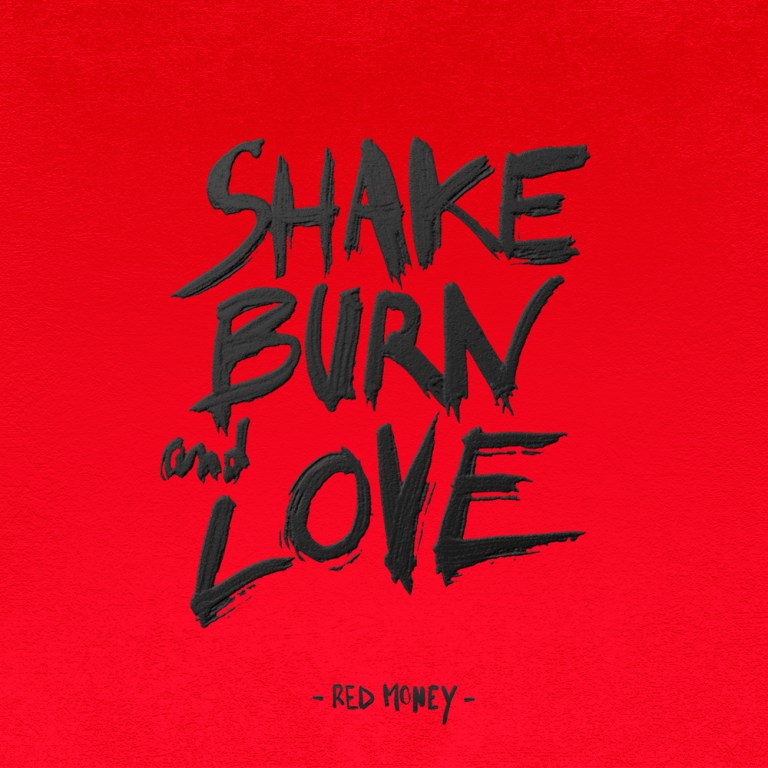 SHAKE
BURN
and
LOVE
- RED MONEY -